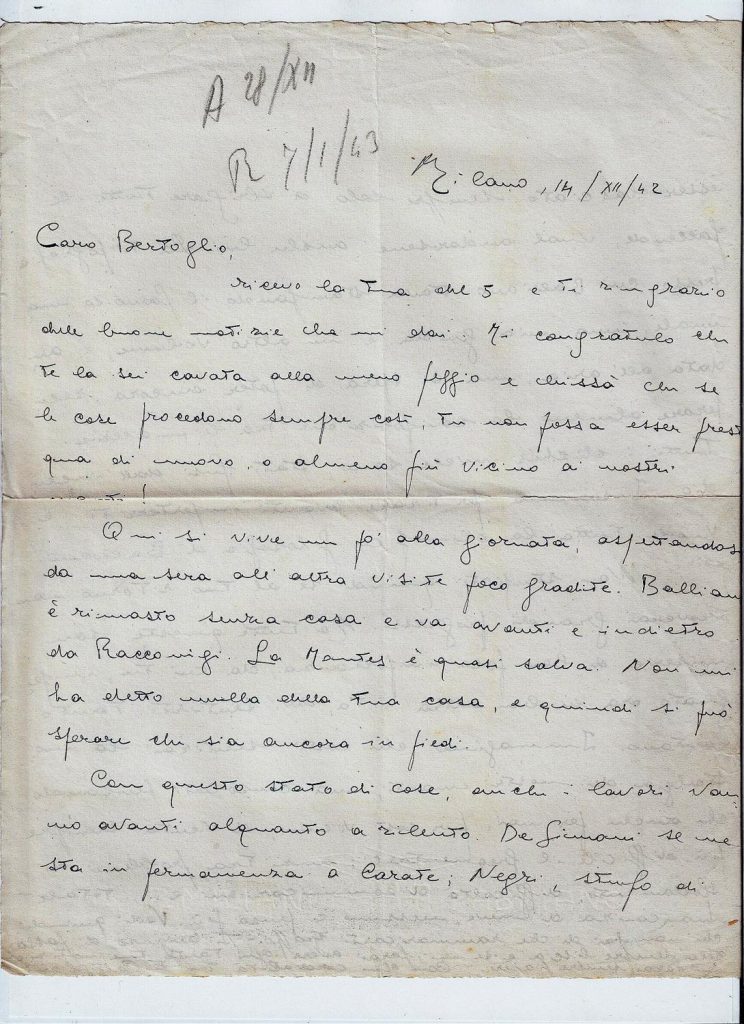 A 28/XII
R 7/1/43
Milano, 14/XII/42
Caro Bertoglio,
ricevo la tua del 5 e ti ringrazio
delle buone notizie che mi dai. Mi congratulo che
te la sei cavata alla meno peggio e chissà che se
le cose procedono sempre così, tu non possa esser prest
qua di nuovo, o almeno più vicino ai nostri
!
Qui si vive un po' alla giornata, aspettandos
da una sera all'altra visite poco gradite. Ballian
è rimasto senza casa e va avanti e indietro
da Racconigi. La Montes è quasi salva. Non mi
ha detto nulla della tua casa, e quindi si può
sperare che sia ancora in piedi.
Con questo stato di cose, anche i lavori van
no avanti alquanto a rilento. De Simoni se ne
sta in permanenza a Carate; Negri, stufo di